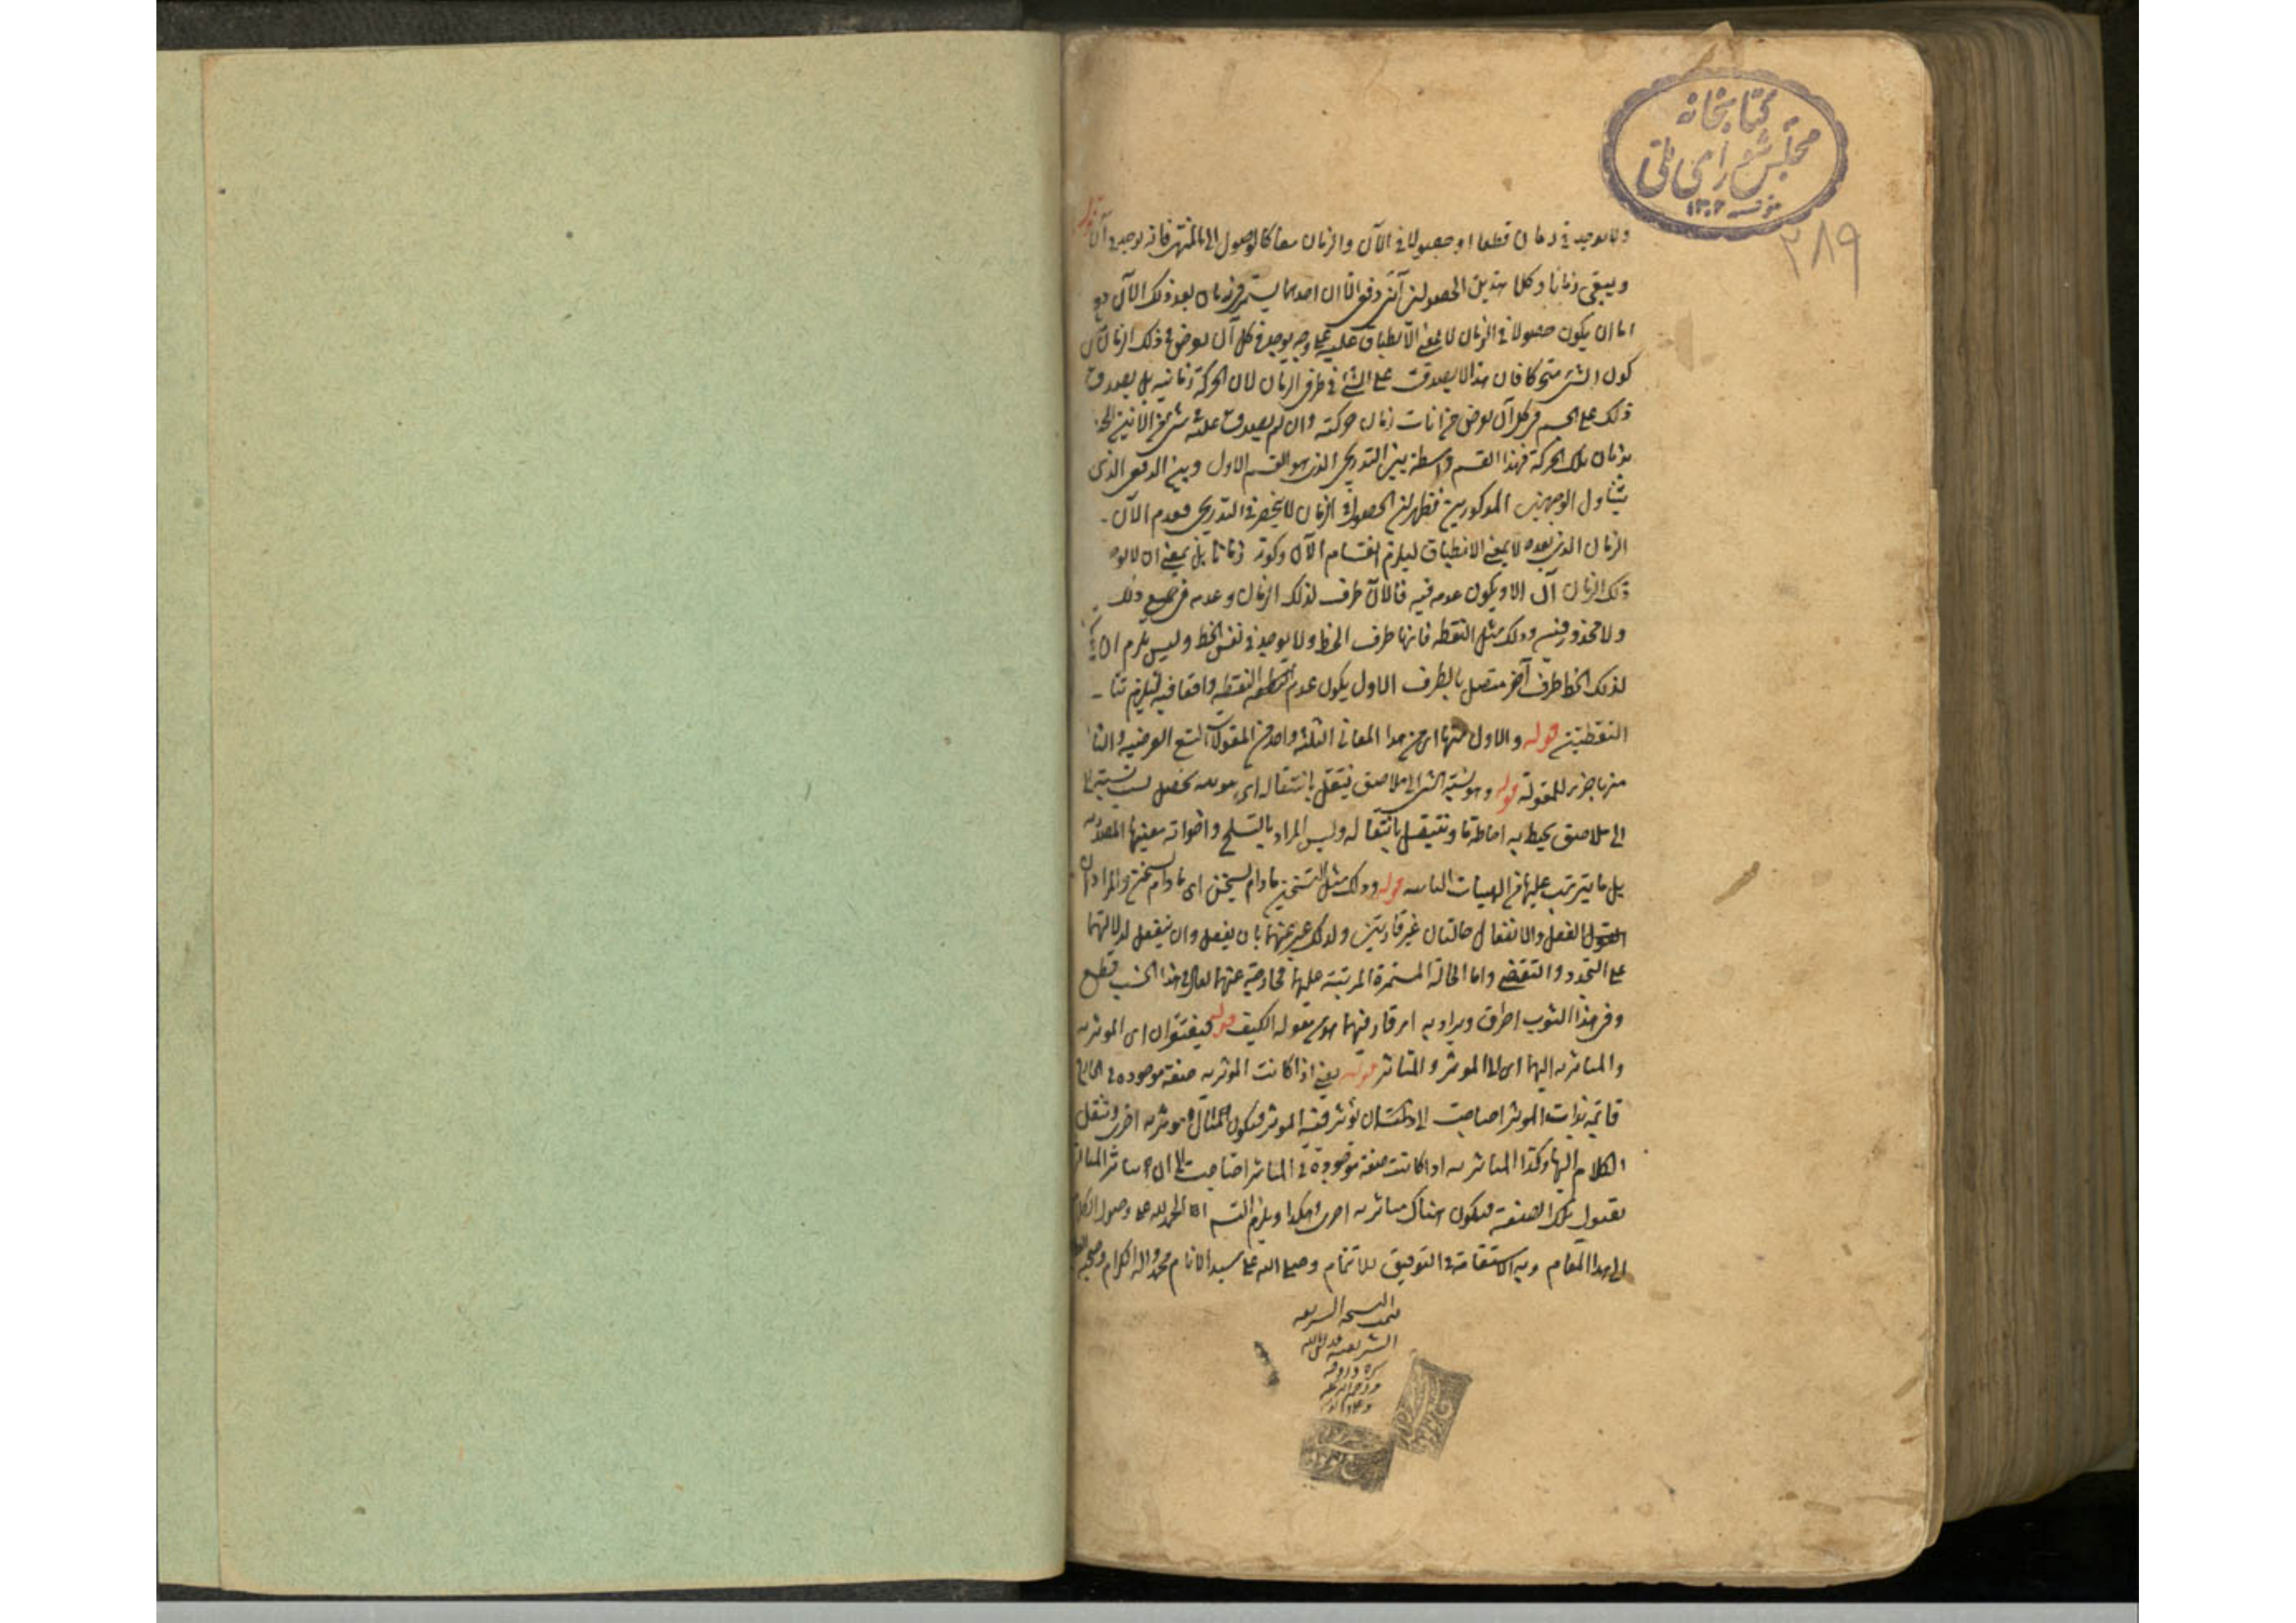 کتابخانه
مجلس شورای ملی
۲۸۹
ولا يوجد في زمان قطعا او حصولا في الآن والزمان معا كالوصول الى المنتهى فانه يوجد في آن
ويبقى زمانا وكلا هذين الحصولين آني دفعي الا ان احدهما يستمر في زمان بعد ذلك الآن
اما ان يكون حصولا في الزمان لا بمعنى الانطباق عليه على وجه يوجد في كل آن يعرض في ذلك الزمان
كون الشئ متحركا فان هذا لا يصدق على الشئ في طرف الزمان لان الحركة زمانية بل يصدق
ذلك على الجسم في كل آن يعرض من آنات زمان حركته وان لم يصدق عليه في شئ من الآنين
بزمان تلك الحركة فهذا القسم واسطة بين التدريجي الذي هو القسم الاول وبين الدفعي الذي
يتناول الوجهين المذكورين فظهر ان الحصول في الزمان لا ينحصر في التدريجي فعدم الآن
الزمان الذي بعده لا بمعنى الانطباق ليلزم انقسام الآن وكونه زمانا بل بمعنى ان لا يوجد
ذلك الزمان آن الا ويكون عدمه فيه فالآن طرف لذلك الزمان وعدمه في جميع ذلك
ولا محذور فيه وذلك مثل النقطه فانها طرف الخط ولا يوجد في نفس الخط وليس يلزم ان
لذلك الخط طرف آخر متصل بالطرف الاول يكون عدم النقطه واقعا فيه فيلزم
النقطتين قوله والاول منها اى من هذا المعانى الثلثه واحد من المقولات التسع العرضيه
منها جزء للمقولة قوله وهو نسبة الشئ الى ملاصق ينتقل بانتقاله اى هو هيئة تحصل بسبب نسبته
الى ملاصق يحيط به احاطة ما وينتقل بانتقاله وليس المراد بالتسلح واخواته معنيها المصدريه
بل ما يترتب عليها من الهيئات قوله وذلك مثل التسخين ما دام يسخن اى ما دام يسخن والمراد ان
الفعل والانفعال حالتان غير قارتين ولذلك عبر عنهما بان يفعل وان ينفعل لدلالتهما
على التجدد والتقضى واما الحالة المستمرة المرتبة عليها فخارجة عنهما يقال في هذا الخشب قطع
وفى هذا الثوب احراق ويراد به امر قار فيهما فهو من مقوله الكيف قوله فيفتقران اى الموثريه
والمتاثريه اليهما اى الى الموثر والمتاثر قوله يعنى اذا كانت الموثريه صفة موجوده فى الخارج
قائمه بذات الموثر احتاجت الى ان يؤثر فيه الموثر فيكون هناك موثريه اخرى وينقل
الكلام اليها وكذا المتاثريه اذا كانت صفة موجودة فى المتاثر احتاجت الى ان يتاثر المتاثر
بقبول تلك الصفة فيكون هناك متاثريه اخرى وهكذا ويلزم التسلسل الحمد لله على وصول الكلام
الى هذا المقام وبه الاستقامة فى التوفيق للاتمام وصلى الله على سيد الانام محمد واله الكرام وصحبه
تمت النسخه الشريفه